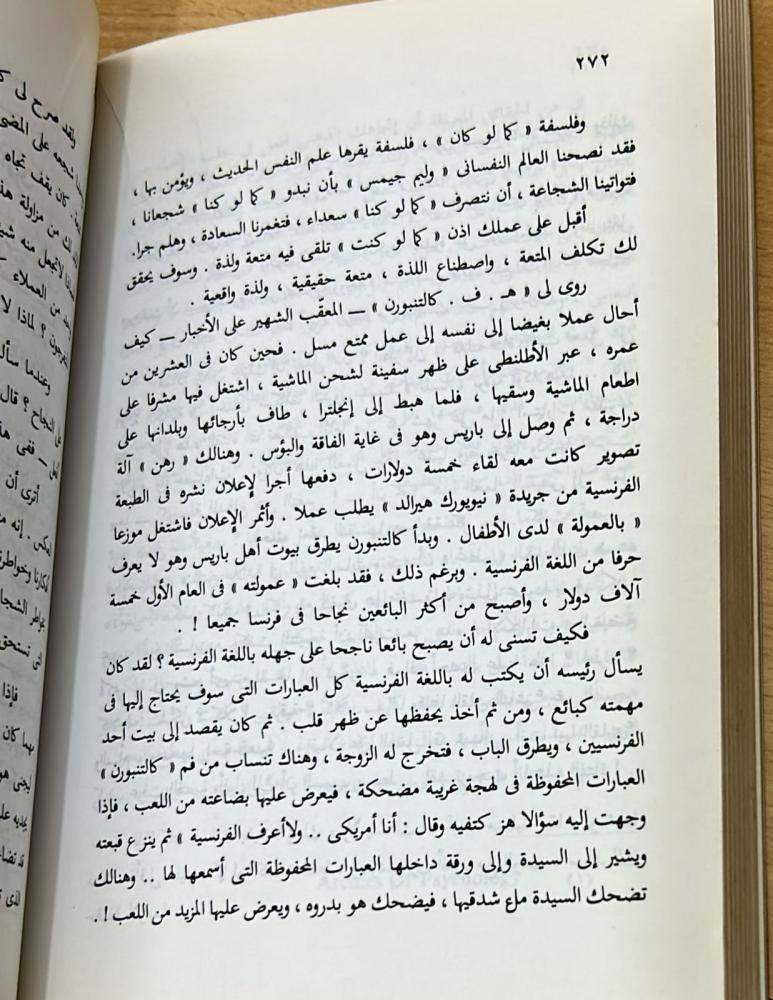 ٢٧٢
وفلسفة « كما لو كان » ، فلسفة يقرها علم النفس الحديث ، ويؤمن بها ،
فقد نصحنا العالم النفسانى « وليم جيمس » بأن نبدو « كما لو كنا » شجعانا ،
فتواتينا الشجاعة ، أن نتصرف « كما لو كنا » سعداء ، فتغمرنا السعادة ، وهلم جرا.
أقبل على عملك اذن « كما لو كنت » تلقى فيه متعة ولذة . وسوف يحقق
لك تكلف المتعة ، واصطناع اللذة ، متعة حقيقية ، ولذة واقعية .
روى لى « هـ . ف . كالتنبورن » — المعقّب الشهير على الأخبار — كيف
أحال عملا بغيضا إلى نفسه إلى عمل ممتع مسل . فحين كان فى العشرين من
عمره ، عبر الأطلنطى على ظهر سفينة لشحن الماشية ، اشتغل فيها مشرفا على
اطعام الماشية وسقيها ، فلما هبط إلى إنجلترا ، طاف بأرجائها وبلدانها على
دراجة ، ثم وصل إلى باريس وهو فى غاية الفاقة والبؤس . وهنالك « رهن » آلة
تصوير كانت معه لقاء خمسة دولارات ، دفعها أجرا لإعلان نشره فى الطبعة
الفرنسية من جريدة « نيويورك هيرالد » يطلب عملا . وأثمر الإعلان فاشتغل موزعا
« بالعمولة » لدى الأطفال . وبدأ كالتنبورن يطرق بيوت أهل باريس وهو لا يعرف
حرفا من اللغة الفرنسية . وبرغم ذلك ، فقد بلغت « عمولته » فى العام الأول خمسة
آلاف دولار ، وأصبح من أكثر البائعين نجاحا فى فرنسا جميعا ! .
فكيف تسنى له أن يصبح بائعا ناجحا على جهله باللغة الفرنسية ؟ لقد كان
يسأل رئيسه أن يكتب له باللغة الفرنسية كل العبارات التى سوف يحتاج إليها فى
مهمته كبائع ، ومن ثم أخذ يحفظها عن ظهر قلب . ثم كان يقصد إلى بيت أحد
الفرنسيين ، ويطرق الباب ، فتخرج له الزوجة ، وهناك تنساب من فم « كالتنبورن »
العبارات المحفوظة فى لهجة غريبة مضحكة ، فيعرض عليها بضاعته من اللعب ، فإذا
وجهت إليه سؤالا هز كتفيه وقال : أنا أمريكى .. ولاأعرف الفرنسية » ثم ينزع قبعته
ويشير إلى السيدة وإلى ورقة داخلها العبارات المحفوظة التى أسمعها لها .. وهنالك
تضحك السيدة ملء شدقيها ، فيضحك هو بدروه ، ويعرض عليها المزيد من اللعب ! .